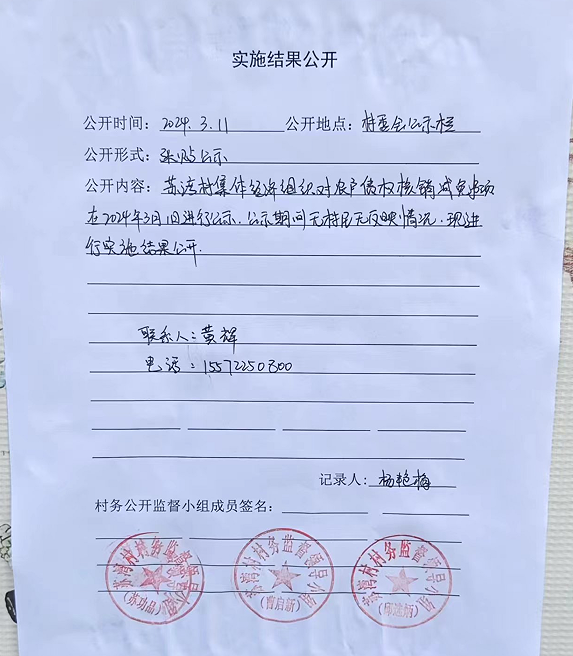 实施结果公开
公开时间：2024.3.11 公开地点：村委会公示栏
公开形式：张贴公示
公开内容：苏湾村集体经济组织对农户债权核销减免事项
在2024年3月1日进行公示，公示期间无村民无反映情况，现进
行实施结果公开.
联系人：黄辉
电话：15572250300
记录人：杨艳梅
村务公开监督小组成员签名：
苏湾村村务监督 小组
（苏功品）
苏湾村村务监督 小组
（曹启新）
苏湾村村务监督 小组